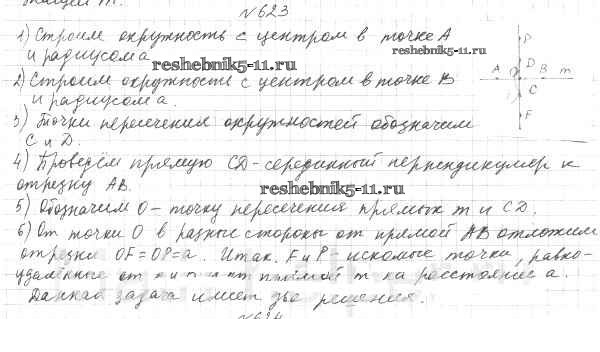 №623
1) Строим окружность с центром в точке А
и радиусом а
reshebnik5-11.ru
reshebnik5-11.ru
2) Строим окружность с центром в точке В
и радиусом а.
3) Точки пересечения окружностей обозначим
С и D.
4) Проведём прямую CD - серединный перпендикуляр к
отрезку АВ.
reshebnik5-11.ru
5) Обозначим О - точку пересечения прямых m и CD.
6) От точки О в разные стороны от прямой АВ отложим
отрезки OF = OP = a. Итак, F и P искомые точки, равно-
удалённые от прямой m на расстояние а.
Данная задача имеет две решения.
P
D
A O B m
C
F